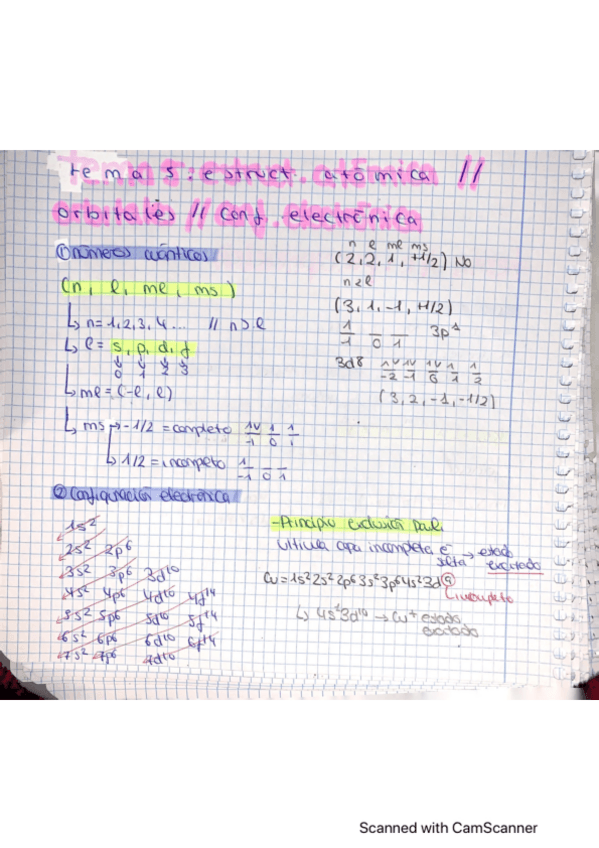 tema 5: estruct. atómica //
orbitales // conf. electrónica
① números cuánticos
(n, l, ml, ms)
↳ n= 1,2,3,4... // n>l
↳ l = s, p, d, f
0 1 2 3
↳ ml = (-l, l)
↳ ms → -1/2 = completo 1v 1 1
-1 0 1
↳ 1/2 = incompleto 1
-1 0 1
n l ml ms
(2,2,1,+1/2) No
n≥l
(3,1,-1,+1/2)
1
-1 0 1 3p¹
3d8 1v 1v 1v 1 1
-2 -1 0 1 2
(3,2,-1,-1/2)
② Configuración electrónica
1s²
2s² 2p⁶
3s² 3p⁶ 3d¹⁰
4s² 4p⁶ 4d¹⁰ 4f¹⁴
5s² 5p⁶ 5d¹⁰ 5f¹⁴
6s² 6p⁶ 6d¹⁰ 6f¹⁴
7s² 7p⁶ 7d¹⁰
-Principio exclusión Pauli
Ultima capa incompleta e⁻ salta → estado excitado
Cu = 1s² 2s² 2p⁶ 3s² 3p⁶ 4s² 3d⁹
↳ incompleto
↳ 4s¹ 3d¹⁰ → Cu⁺ estado excitado
Scanned with CamScanner